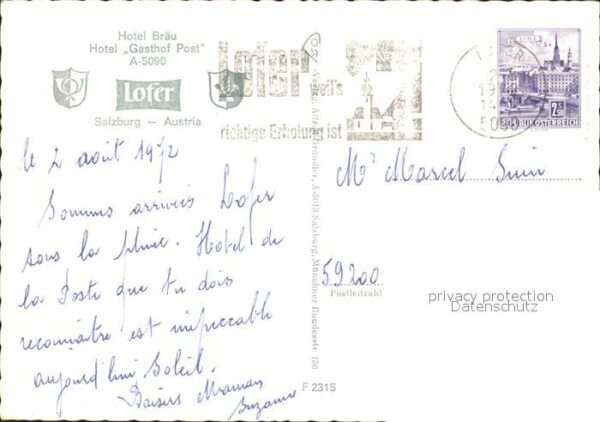 Hotel Bräu
Hotel „Gasthof Post"
A-5090
Lofer
Salzburg – Austria
Lofer
weil's
richtige Erholung ist
2,50
REPUBLIK ÖSTERREICH
le 2 août 1972
Sommes arrivés Lofer
sous la pluie. Hotel de
la Poste que tu dois
reconnaître est impeccable
aujourd'hui Soleil.
Baisers Maman
Suzanne
A-5013 Salzburg, Münchner Bundesstr. 156
F 2315
Mr Marcel
59200
Postleitzahl
privacy protection
Datenschutz